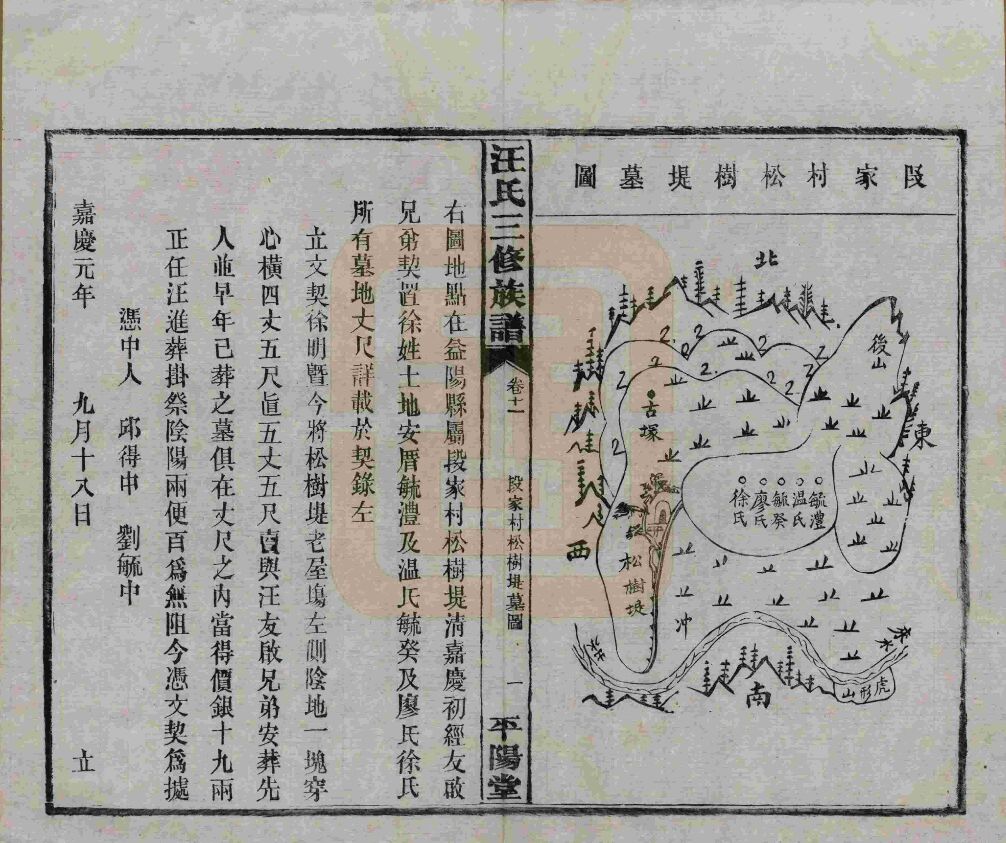 段家村松樹堤墓圖
北
後山
東
古塚
毓澧
温氏
毓癸
廖氏
徐氏
西
松樹堤
冲
來水
虎形山
南
去水
汪氏三修族譜
卷十一
段家村松樹堤墓圖
一
平陽堂
右圖地點在益陽縣屬段家村松樹堤清嘉慶初經友啟
兄弟契置徐姓土地安厝毓澧及温氏毓癸及廖氏徐氏
所有墓地丈尺詳載於契錄左
立文契徐明暨今將松樹堤老屋塲左側陰地一塊穿
心橫四丈五尺直五丈五尺賣與汪友啟兄弟安葬先
人並早年已葬之墓俱在丈尺之內當得價銀十九兩
正任汪進葬掛祭陰陽兩便百爲無阻今憑文契爲據
憑中人 邱得申 劉毓中
嘉慶元年 九月十八日 立